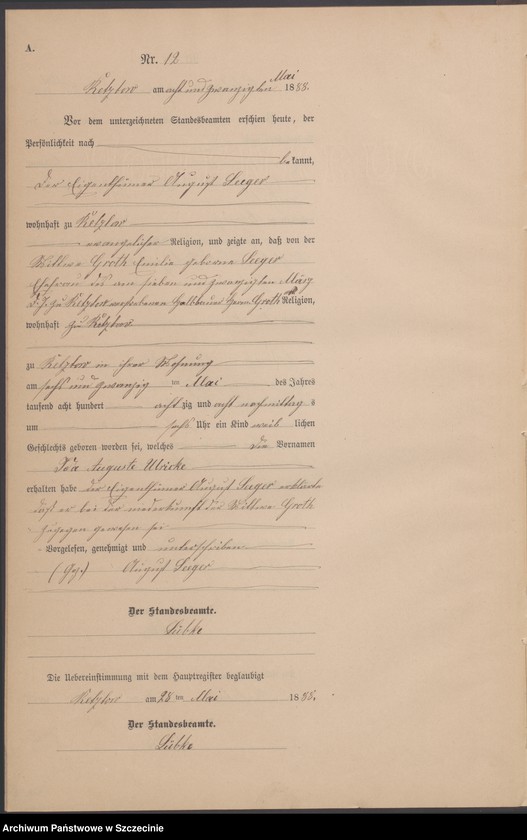 A.
Nr. 12
Retzkow am acht und zwanzigsten Mai 1888.
Vor dem unterzeichneten Standesbeamten erschien heute, der
Persönlichkeit nach
bekannt,
Der Eigenthümer August Seeger
wohnhaft zu Retzkow
evangelischer Religion, und zeigte an, daß von der
Wittwe Groth Emilie geborne Seeger
Ehefrau des am sieben und zwanzigsten März
d. J. zu Retzkow verstorbenen Groth Religion,
wohnhaft zu Retzkow
zu Retzkow in ihrer Wohnung
am sechs und zwanzig ten Mai des Jahres
tausend acht hundert acht zig und acht nachmittag s
um sechs Uhr ein Kind weib lichen
Geschlechts geboren worden sei, welches die Vornamen
Ida Auguste Ulricke
erhalten habe der Eigenthümer August Seeger erklärte
daß er bei der niederkunft der Wittwe Groth
zugegen gewesen sei
Vorgelesen, genehmigt und unterschrieben
(Gez.) August Seeger
Der Standesbeamte.
Lübke
Die Uebereinstimmung mit dem Hauptregister beglaubigt
Retzkow am 28 ten Mai 1888.
Der Standesbeamte.
Lübke
Archiwum Państwowe w Szczecinie